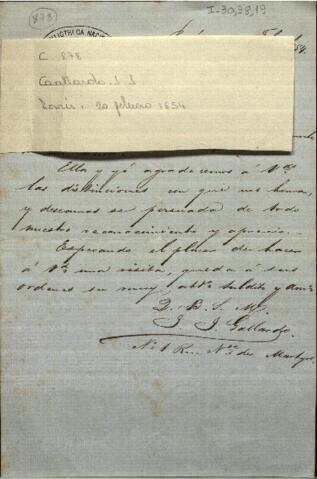 878
I-30,38,19
BIBLIOTHECA NAC
C. 878
Gallardo, J. J.
Paris, 20 febrero 1854
Ella y yo agradecemos á Vd.
las distinciones con que nos honra,
y deseamos se persuada de todo
nuestro reconocimiento y aprecio.
Esperando el placer de hacer
á Vd. una visita, queda á sus
ordenes su muy att.
D. B. S. M.
J. J. Gallardo.
No. 1 Rue des Martyrs